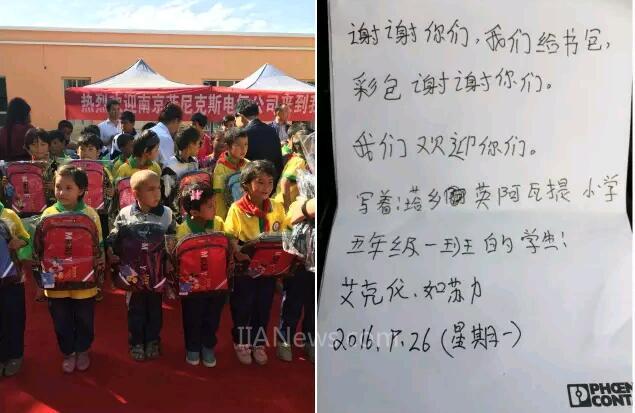 热烈欢迎南京菲尼克斯电气公司来到我
谢谢你们,我们给书包,
彩包谢谢你们。
我们欢迎你们。
写着:塔乡英阿瓦提小学
五年级一班的学生:
艾克.如苏力
2016.9.26(星期一)
IIANews.com
PHOEN
CONT